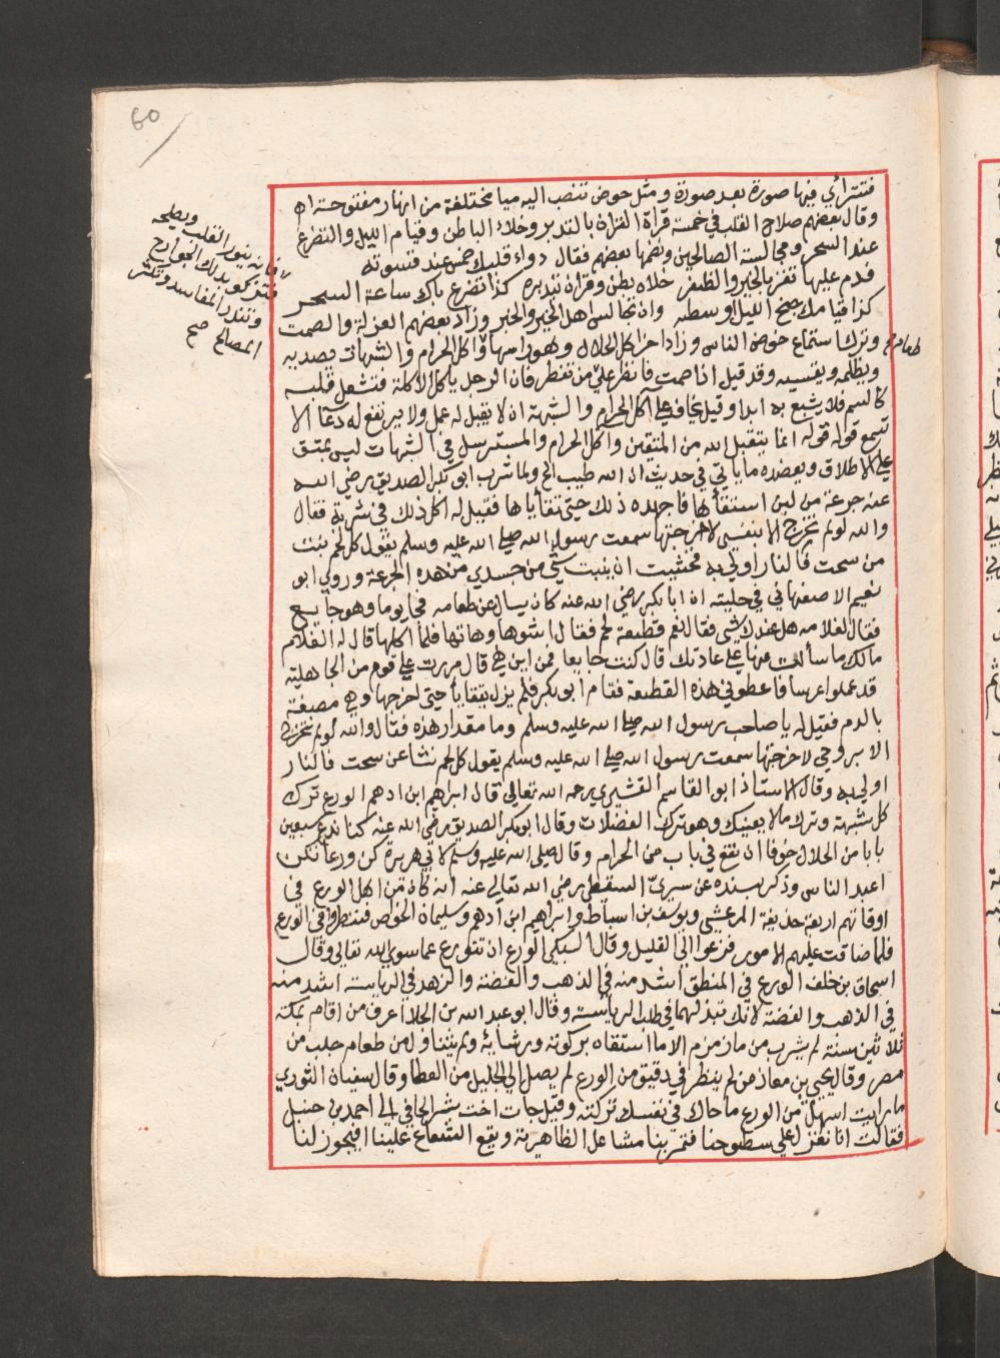 60
فتتراأي فيها صورة بعد صورة ومثل حوض تنصب اليه ميا مختلفة من انهار مفتوحة اه
وقال بعضهم صلاح القلب في خمسة قرأة القرآن بالتدبر وخلاء الباطن وقيام الليل والتضرع
عند السحر ومجالسة الصالحين ونظمها بعضهم فقال دواء قلبك خمس عند قسوته
فدم عليها تفز بالخير والظفر خلاء بطن وقرآن تدبره كذا تضرع باك ساعة السحر
كذا قيامك جنح الليل اوسطه وان تجالس اهل الخير والخبر وزاد بعضهم العزلة والصمت
وترك استماع خوض الناس وزاد اخر اكل الحلال وهو راسها واكل الحرام والشبهات يصديه
ويظلمه ويقسيه وقد قيل اذا صمت فانظر علي من تفطر فان الرجل ياكل الاكلة فتشعل قلبه
كالسم فلا يشبع به ابدا وقيل يخاف علي آكل الحرام والشبهة ان لا يقبل له عمل ولا يرفع له دعآ الا
تسمع قوله قوله انما يتقبل الله من المتقين وآكل الحرام والمسترسل في الشبهات ليس بمتق
علي الاطلاق ويعضده ما ياتي في حديث ان الله طيب الخ ولما شرب ابو بكر الصديق رضي الله
عنه جرعة من لبن استقأها فاجهده ذلك حتي تقأياها فقيل له اكل ذلك في شربة فقال
والله لو لم تخرج الا بنفسي لاخرجتها سمعت رسول الله صلي الله عليه وسلم يقول كل لحم نبت
من سحت فالنار اولي به فخشيت ان ينبت شي من جسدي من هذه الجرعة وروي ابو
نعيم الاصفهاني في حليته ان ابا بكر رضي الله عنه كان يسال عن طعامه فجا يوما وهو جايع
فقال لغلامه هل عندك شي فقال نعم قطيعة لحم فقال اشوها وهاتها فلما اكلها قال له الغلام
مالك ما سألت عنها علي عادتك قال كنت جايعا فمن اين هي قال مررت علي قوم من الجاهلية
قد عملوا عرسا فاعطوني هذه القطيعة فقام ابو بكر فلم يزل يتقايأ حتي اخرجها وهي مصبغة
بالدم فقيل له يا صاحب رسول الله صلي الله عليه وسلم وما مقدار هذه فقال والله لو لم تخرج
الا بروحي لاخرجتها سمعت رسول الله صلي الله عليه وسلم يقول كل لحم نشا عن سحت فالنار
اولي به وقال الاستاذ ابو القاسم القشيري رحمه الله تعالي قال ابراهيم ابن ادهم الورع ترك
كل شبهة وترك ما لا يعنيك وهو ترك الفضلات وقال ابو بكر الصديق رضي الله عنه كنا ندع سبعين
بابا من الحلال خوفا ان نقع في باب من الحرام وقال صلى الله عليه وسلم لابي هريرة كن ورعا تكن
اعبد الناس وذكر بسنده عن سريّ السقطي رضي الله تعالي عنه انه كان من اهل الورع في
اوقاتهم اربعة حذيفة المرعشي ويوسف بن اسباط وابراهيم ابن أدهم وسليمان الخواص فنظروا في الورع
فلما ضاقت عليهم الامور فزعوا الي القليل وقال الشبلي الورع ان تتورع عما سوي الله تعالي وقال
اسحاق بن خلف الورع في المنطق اشد منه في الذهب والفضة والزهد في الرياسة اشد منه
في الذهب والفضة لانك تبذلهما في طلب الرياسة وقال ابو عبد الله بن الجلا اعرف من اقام بمكة
ثلاثين سنة لم يشرب من ماء زمزم الا ما استقاه بركوته ورشايه ولم يتناول من طعام جلب من
مصر وقال يحيي بن معاذ من لم ينظر في دقيق من الورع لم يصل الي الجليل من العطا وقال سفيان الثوري
ما رايت اسهل من الورع ما حاك في نفسك تركته وقيل جات اخت بشر الحافي الي احمد بن حنبل
فقالت انا نغزل علي سطوحنا فتمر بنا مشاعل الظاهرية ويقع الشعاع علينا افيجوز لنا
ويصلحه
فانه ينور القلب
فتزكو بذلك الجوارح
وتندرأ المفاسد وتكثر
المصالح صح
طعام